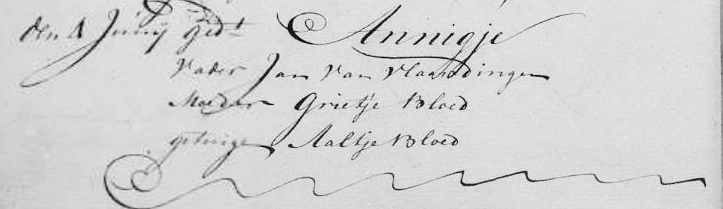 den 4 Junij ged.t Annigje
Vader Jan van Vlaardingen
Moeder Grietje Bloed
getuige Aaltje Bloed